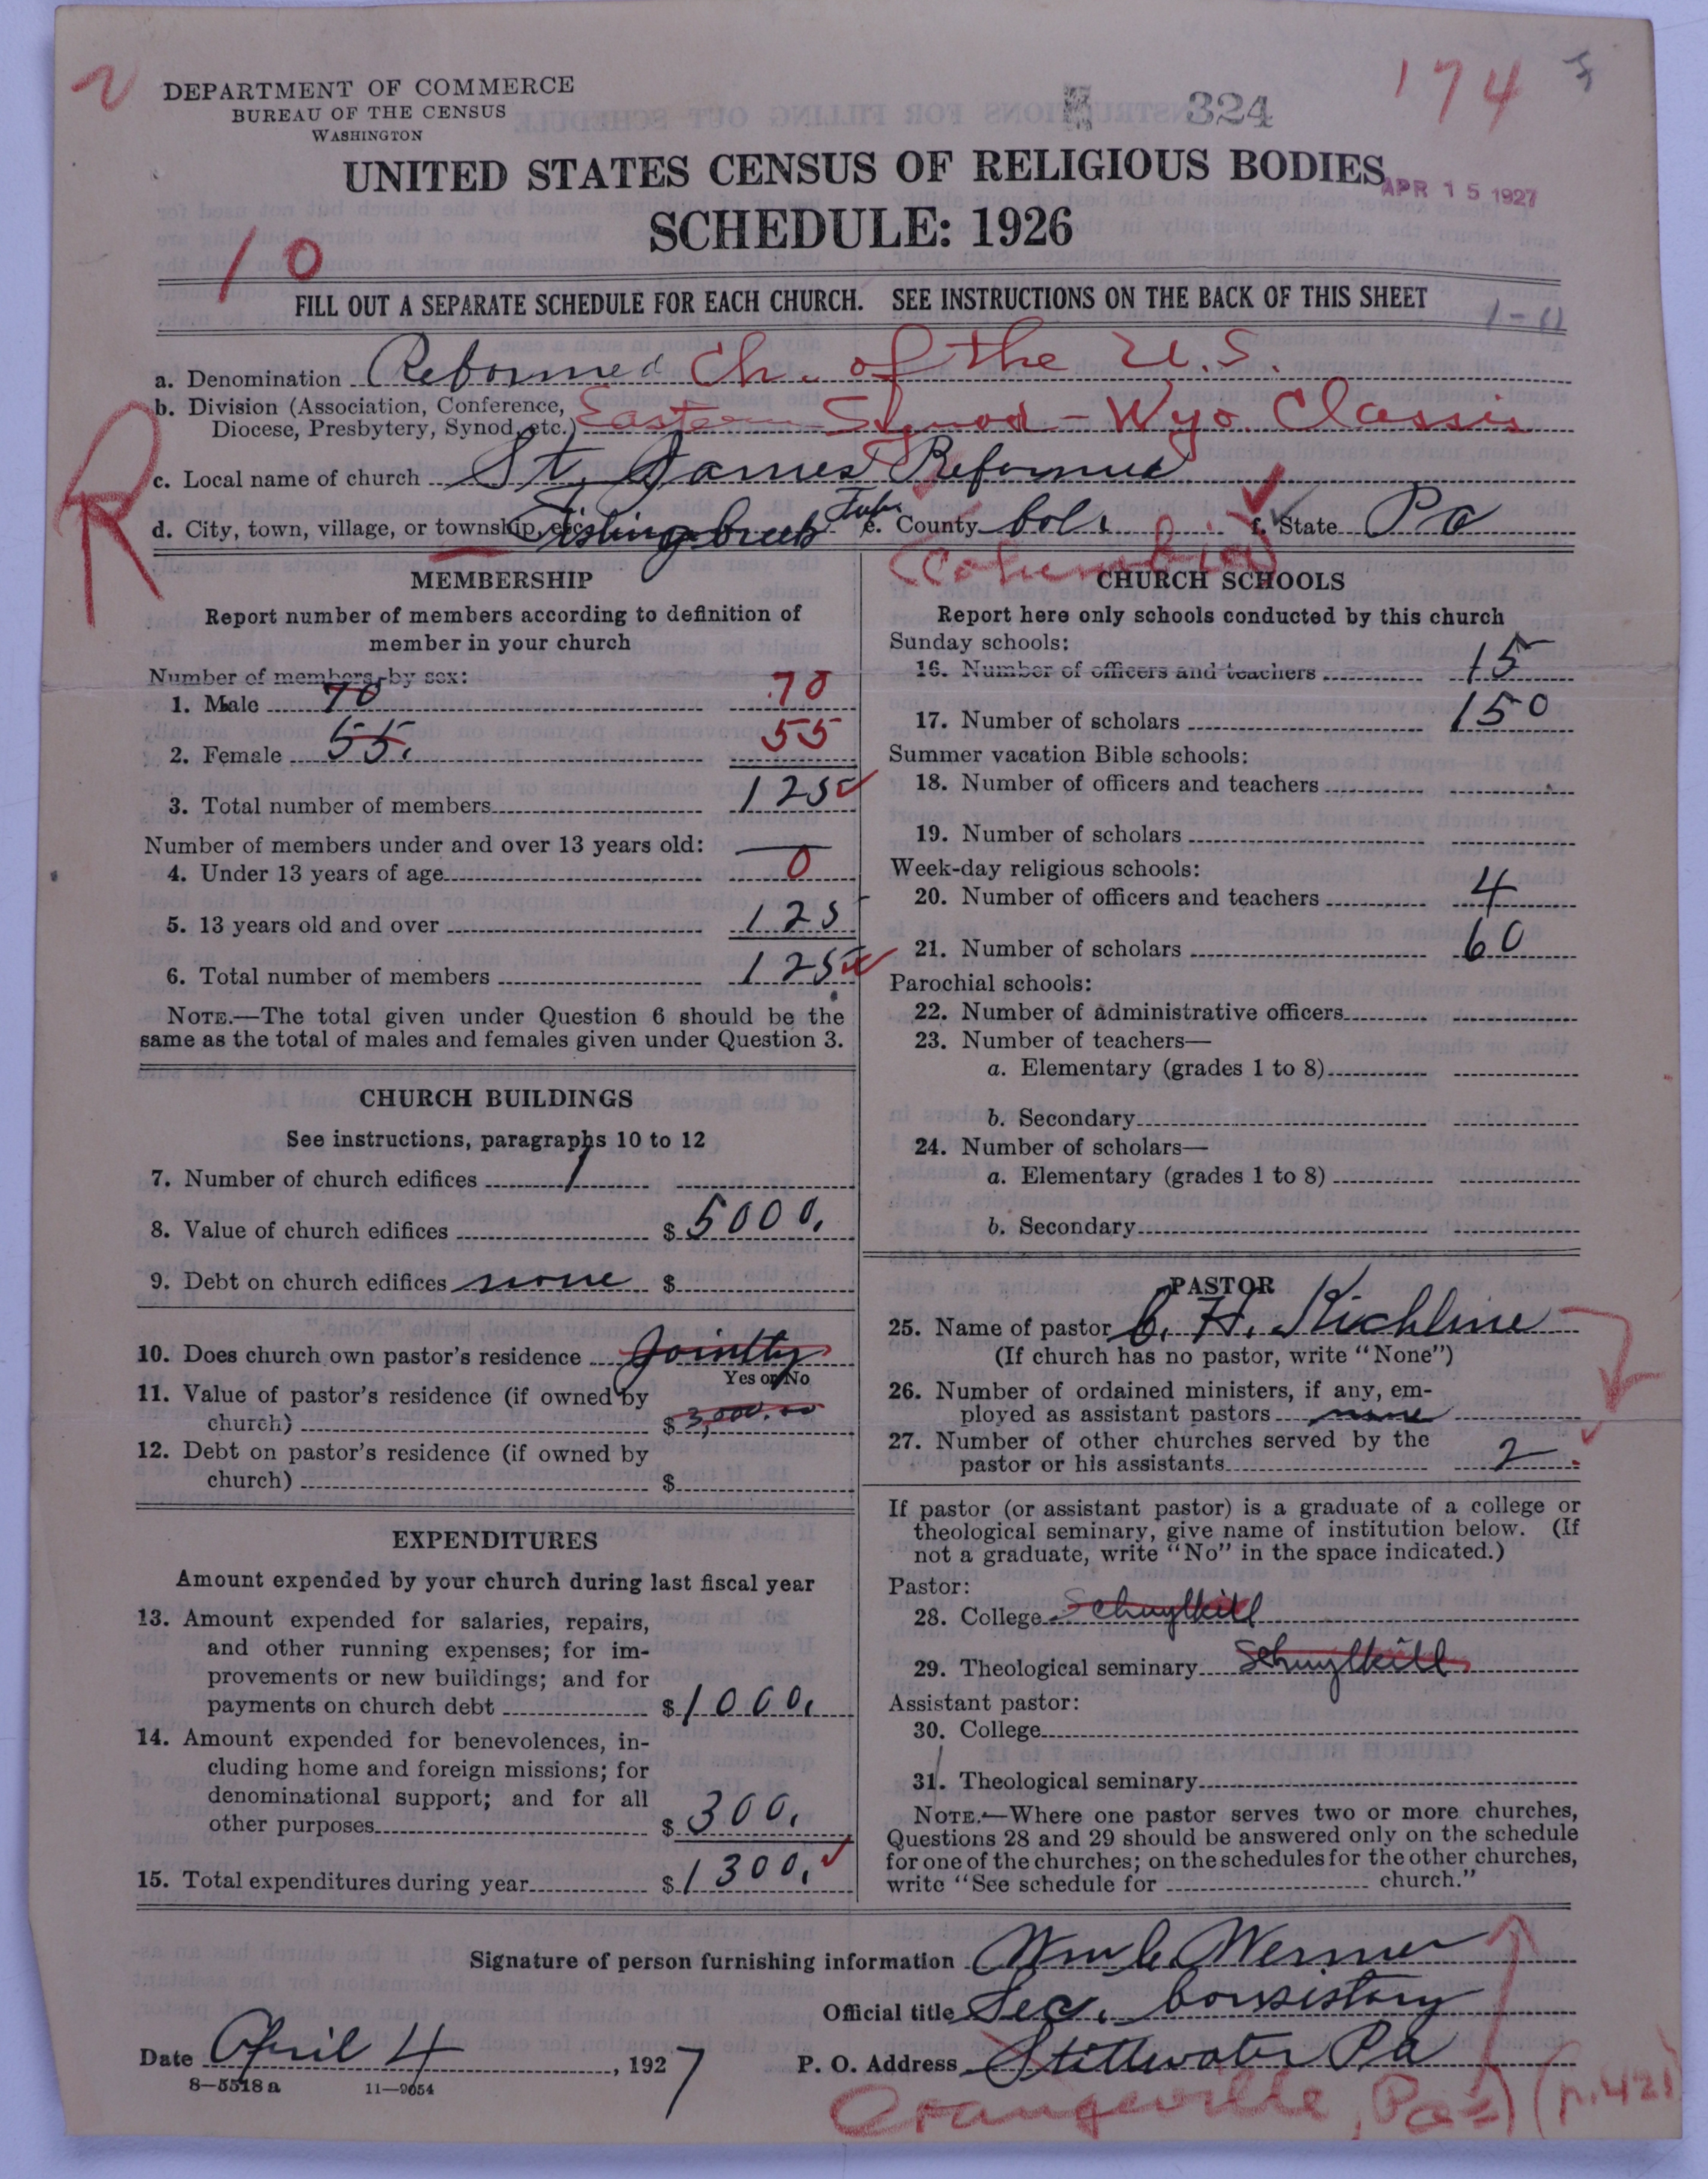 DEPARTMENT OF COMMERCE
BUREAU OF THE CENSUS
WASHINGTON
324
174
UNITED STATES CENSUS OF RELIGIOUS BODIES
APR 15 1927
SCHEDULE: 1926
10
FILL OUT A SEPARATE SCHEDULE FOR EACH CHURCH. SEE INSTRUCTIONS ON THE BACK OF THIS SHEET
1-11
a. Denomination Reformed Ch. of the U.S.
b. Division (Association, Conference, Diocese, Presbytery, Synod, etc.) Eastern Synod - Wyo. Classis
c. Local name of church St. James Reformed
R
d. City, town, village, or township, etc. Fishingcreek Twp. e. County Col. f. State Pa
(Columbia)
MEMBERSHIP
Report number of members according to definition of
member in your church
Number of members by sex:
1. Male 70 70
2. Female 55. 55
3. Total number of members 125
Number of members under and over 13 years old:
4. Under 13 years of age 0
5. 13 years old and over 125
6. Total number of members 125
NOTE.—The total given under Question 6 should be the
same as the total of males and females given under Question 3.
CHURCH BUILDINGS
See instructions, paragraphs 10 to 12
7. Number of church edifices 1
8. Value of church edifices $ 5000.
9. Debt on church edifices none $
10. Does church own pastor's residence Jointly
Yes or No
11. Value of pastor's residence (if owned by
church) $ 3,000.00
12. Debt on pastor's residence (if owned by
church) $
EXPENDITURES
Amount expended by your church during last fiscal year
13. Amount expended for salaries, repairs,
and other running expenses; for im-
provements or new buildings; and for
payments on church debt $ 1000.
14. Amount expended for benevolences, in-
cluding home and foreign missions; for
denominational support; and for all
other purposes $ 300.
15. Total expenditures during year $ 1300.
CHURCH SCHOOLS
Report here only schools conducted by this church
Sunday schools:
16. Number of officers and teachers 15
17. Number of scholars 150
Summer vacation Bible schools:
18. Number of officers and teachers
19. Number of scholars
Week-day religious schools:
20. Number of officers and teachers 4
21. Number of scholars 60
Parochial schools:
22. Number of administrative officers
23. Number of teachers—
a. Elementary (grades 1 to 8)
b. Secondary
24. Number of scholars—
a. Elementary (grades 1 to 8)
b. Secondary
PASTOR
25. Name of pastor C. H. Kichline
(If church has no pastor, write "None")
26. Number of ordained ministers, if any, em-
ployed as assistant pastors none
27. Number of other churches served by the
pastor or his assistants 2
If pastor (or assistant pastor) is a graduate of a college or
theological seminary, give name of institution below. (If
not a graduate, write "No" in the space indicated.)
Pastor:
28. College Schuylkill
29. Theological seminary Schuylkill
Assistant pastor:
30. College
31. Theological seminary
NOTE.—Where one pastor serves two or more churches,
Questions 28 and 29 should be answered only on the schedule
for one of the churches; on the schedules for the other churches,
write "See schedule for church."
Signature of person furnishing information Wm C. Werner
Official title Sec. Consistory
Date April 4, 1927 P. O. Address Stillwater Pa
8—5518 a 11—9054
Orangeville, Pa